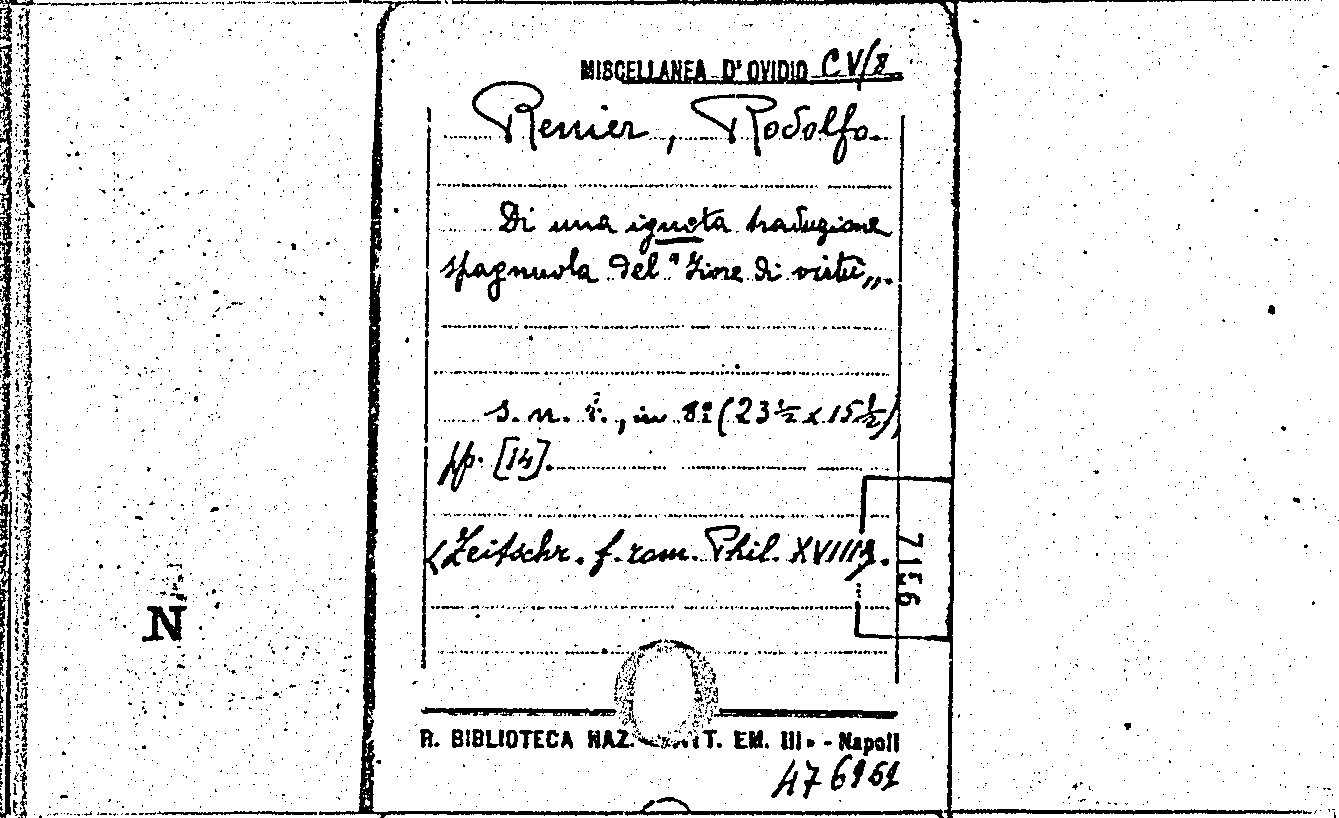 MISCELLANEA D'OVIDIO CV/8
Renier, Rodolfo.
Di una ignota traduzione
spagnuola del "Fiore di virtù„.
s. n. t., in 8º (23½ x 15½),
pp. [14].
(Zeitschr. f. rom. Phil. XVIII).
7156
N
R. BIBLIOTECA NAZ. VITT. EM. III. - Napoli
476961